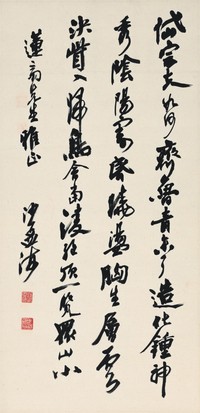 岱宗夫如何齊魯青未了造化鍾神
秀陰陽割昏曉盪胸生層雲
決眥入歸鳥會當凌絕頂一覽眾山小
蓮先生雅正
沙孟海